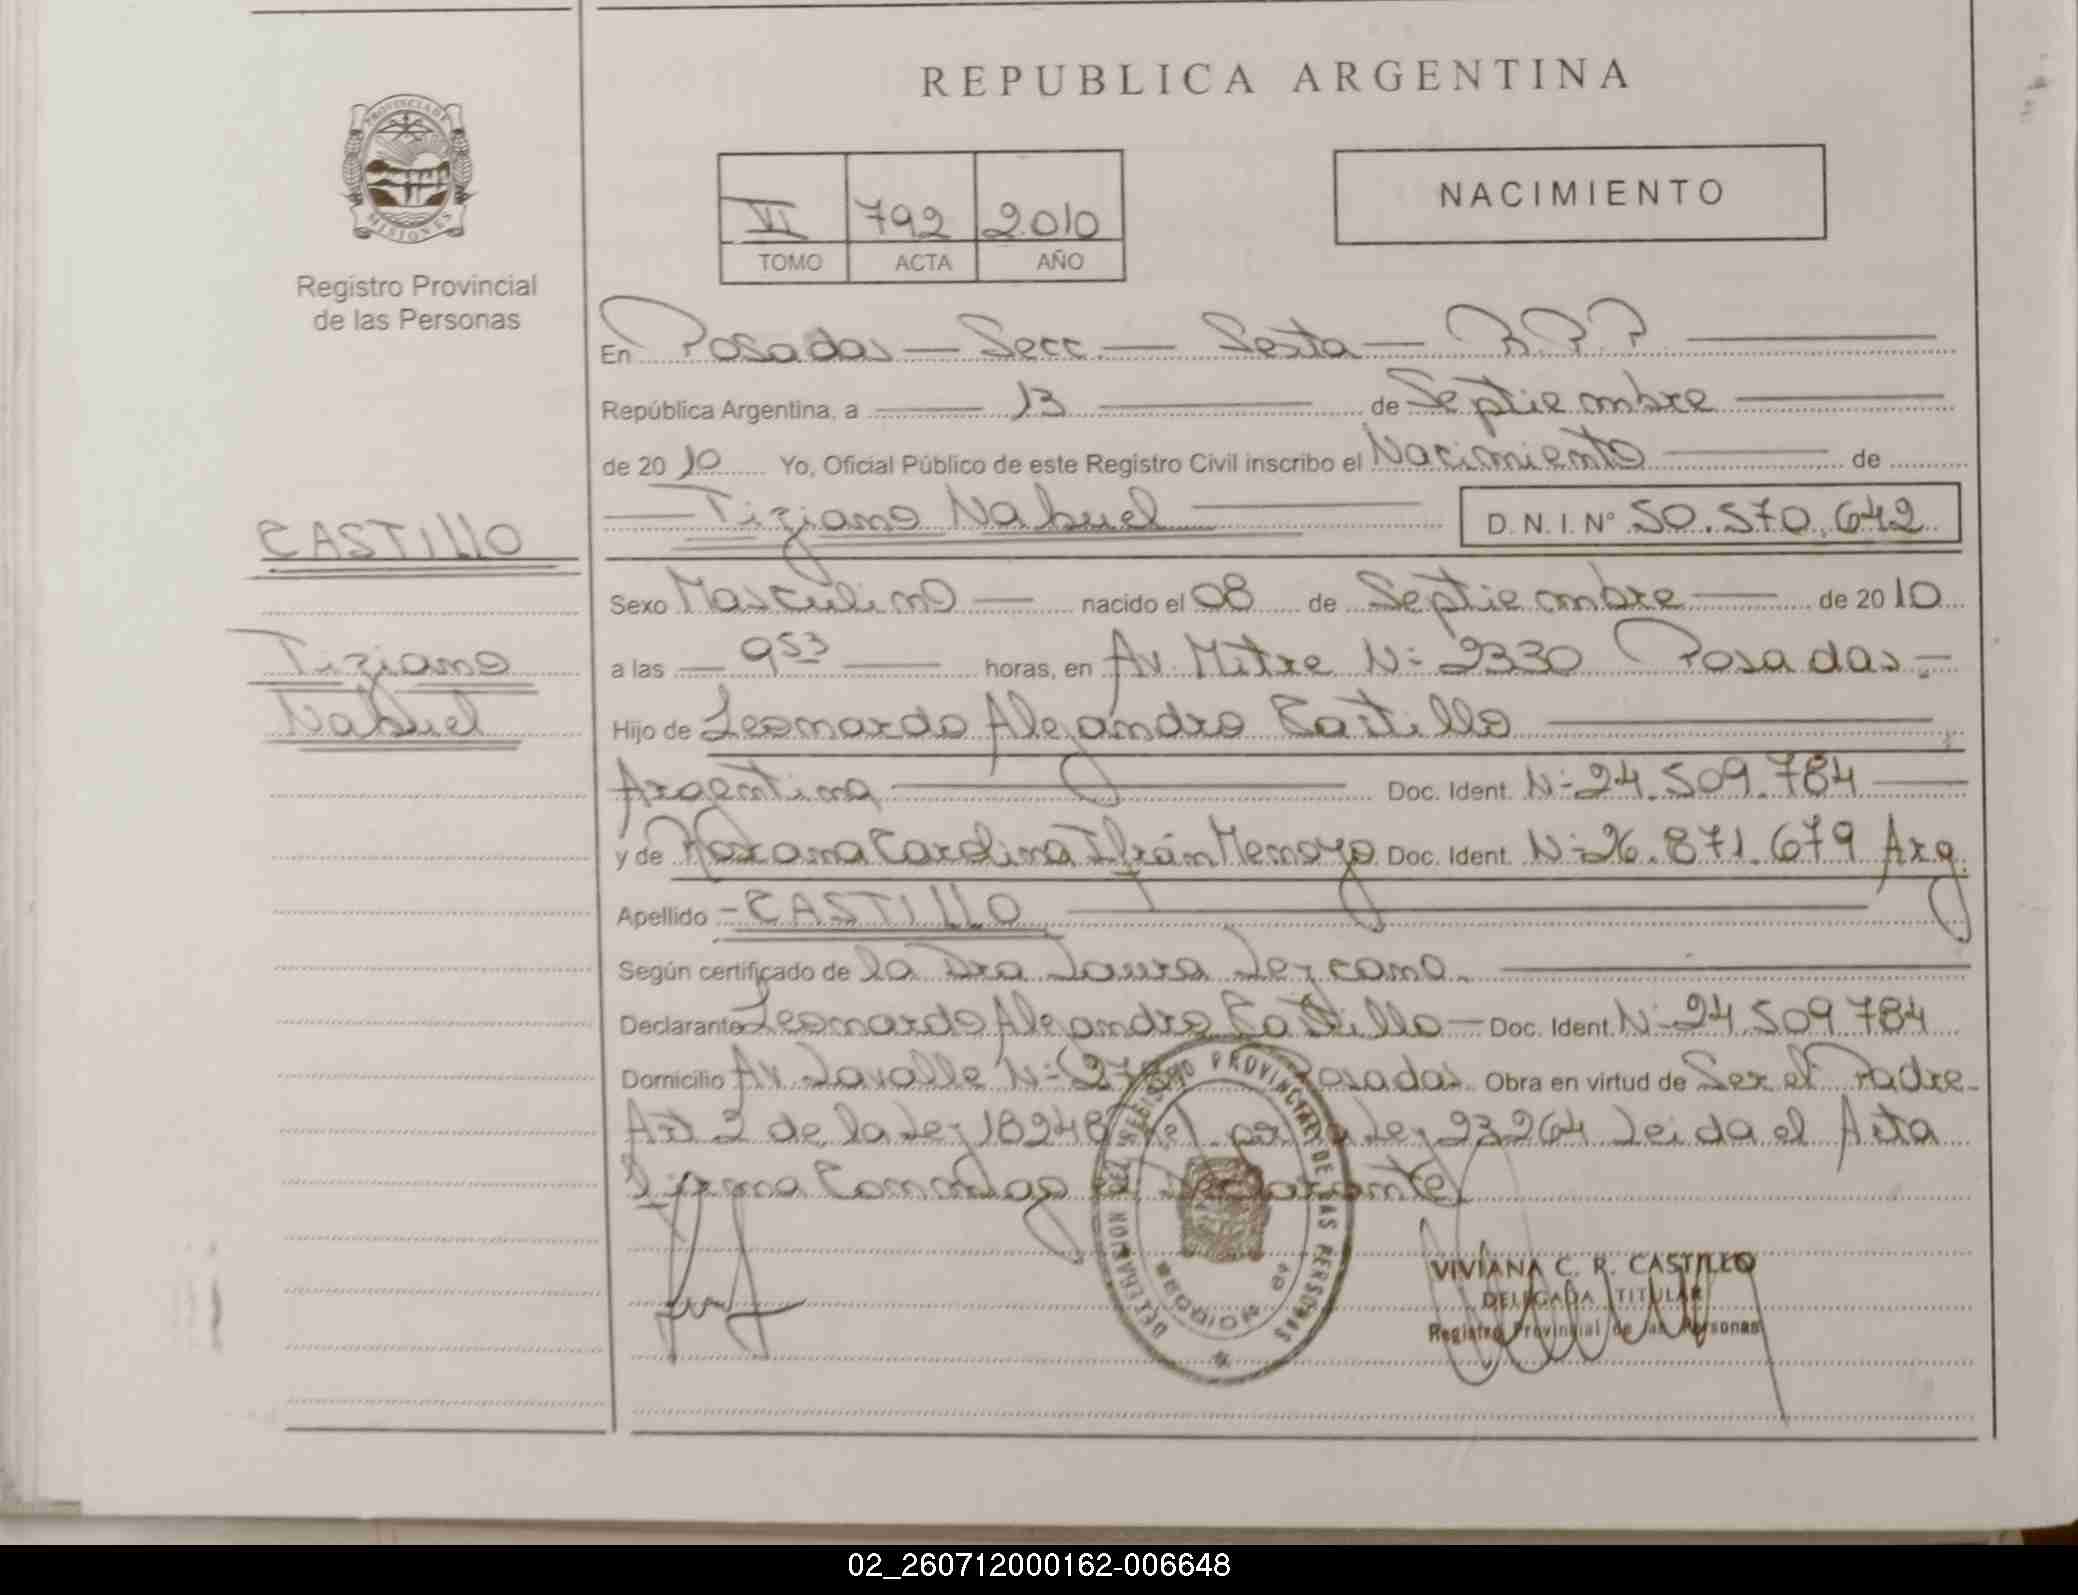 REPUBLICA ARGENTINA
PROVINCIA DE
MISIONES
Registro Provincial
de las Personas
NACIMIENTO
VI 792 2010
TOMO ACTA AÑO
En Posadas - Secc. - Sexta - R.P.P.
República Argentina, a 13 de Septiembre
de 2010 Yo, Oficial Público de este Registro Civil inscribo el Nacimiento de
Tiziano Nahuel D.N.I. Nº 50.570.642
CASTILLO
Tiziano
Nahuel
Sexo Masculino nacido el 08 de Septiembre de 2010
a las 9 53 horas, en Av. Mitre Nº 2330 Posadas.-
Hijo de Leonardo Alejandro Castillo
Argentina Doc. Ident. Nº 24.509.784
y de Roxana Carolina Ifrán Doc. Ident. Nº 26.871.679 Arg.
Apellido - CASTILLO
Según certificado de la Dra Laura Lezcano.
Declarante Leonardo Alejandro Castillo - Doc. Ident. Nº 24.509.784
Domicilio Av Lavalle Nº Posadas. Obra en virtud de Ser el Padre-
Art 2 de la Ley 18248 Ley 23264 Leida el Acta
Firma Conmigo el Declarante
DELEGACION DEL REGISTRO PROVINCIAL DE LAS PERSONAS
SECCION 6ª
VIVIANA C. R. CASTILLO
DELEGADA TITULAR
Registro Provincial de las Personas
02_260712000162-006648